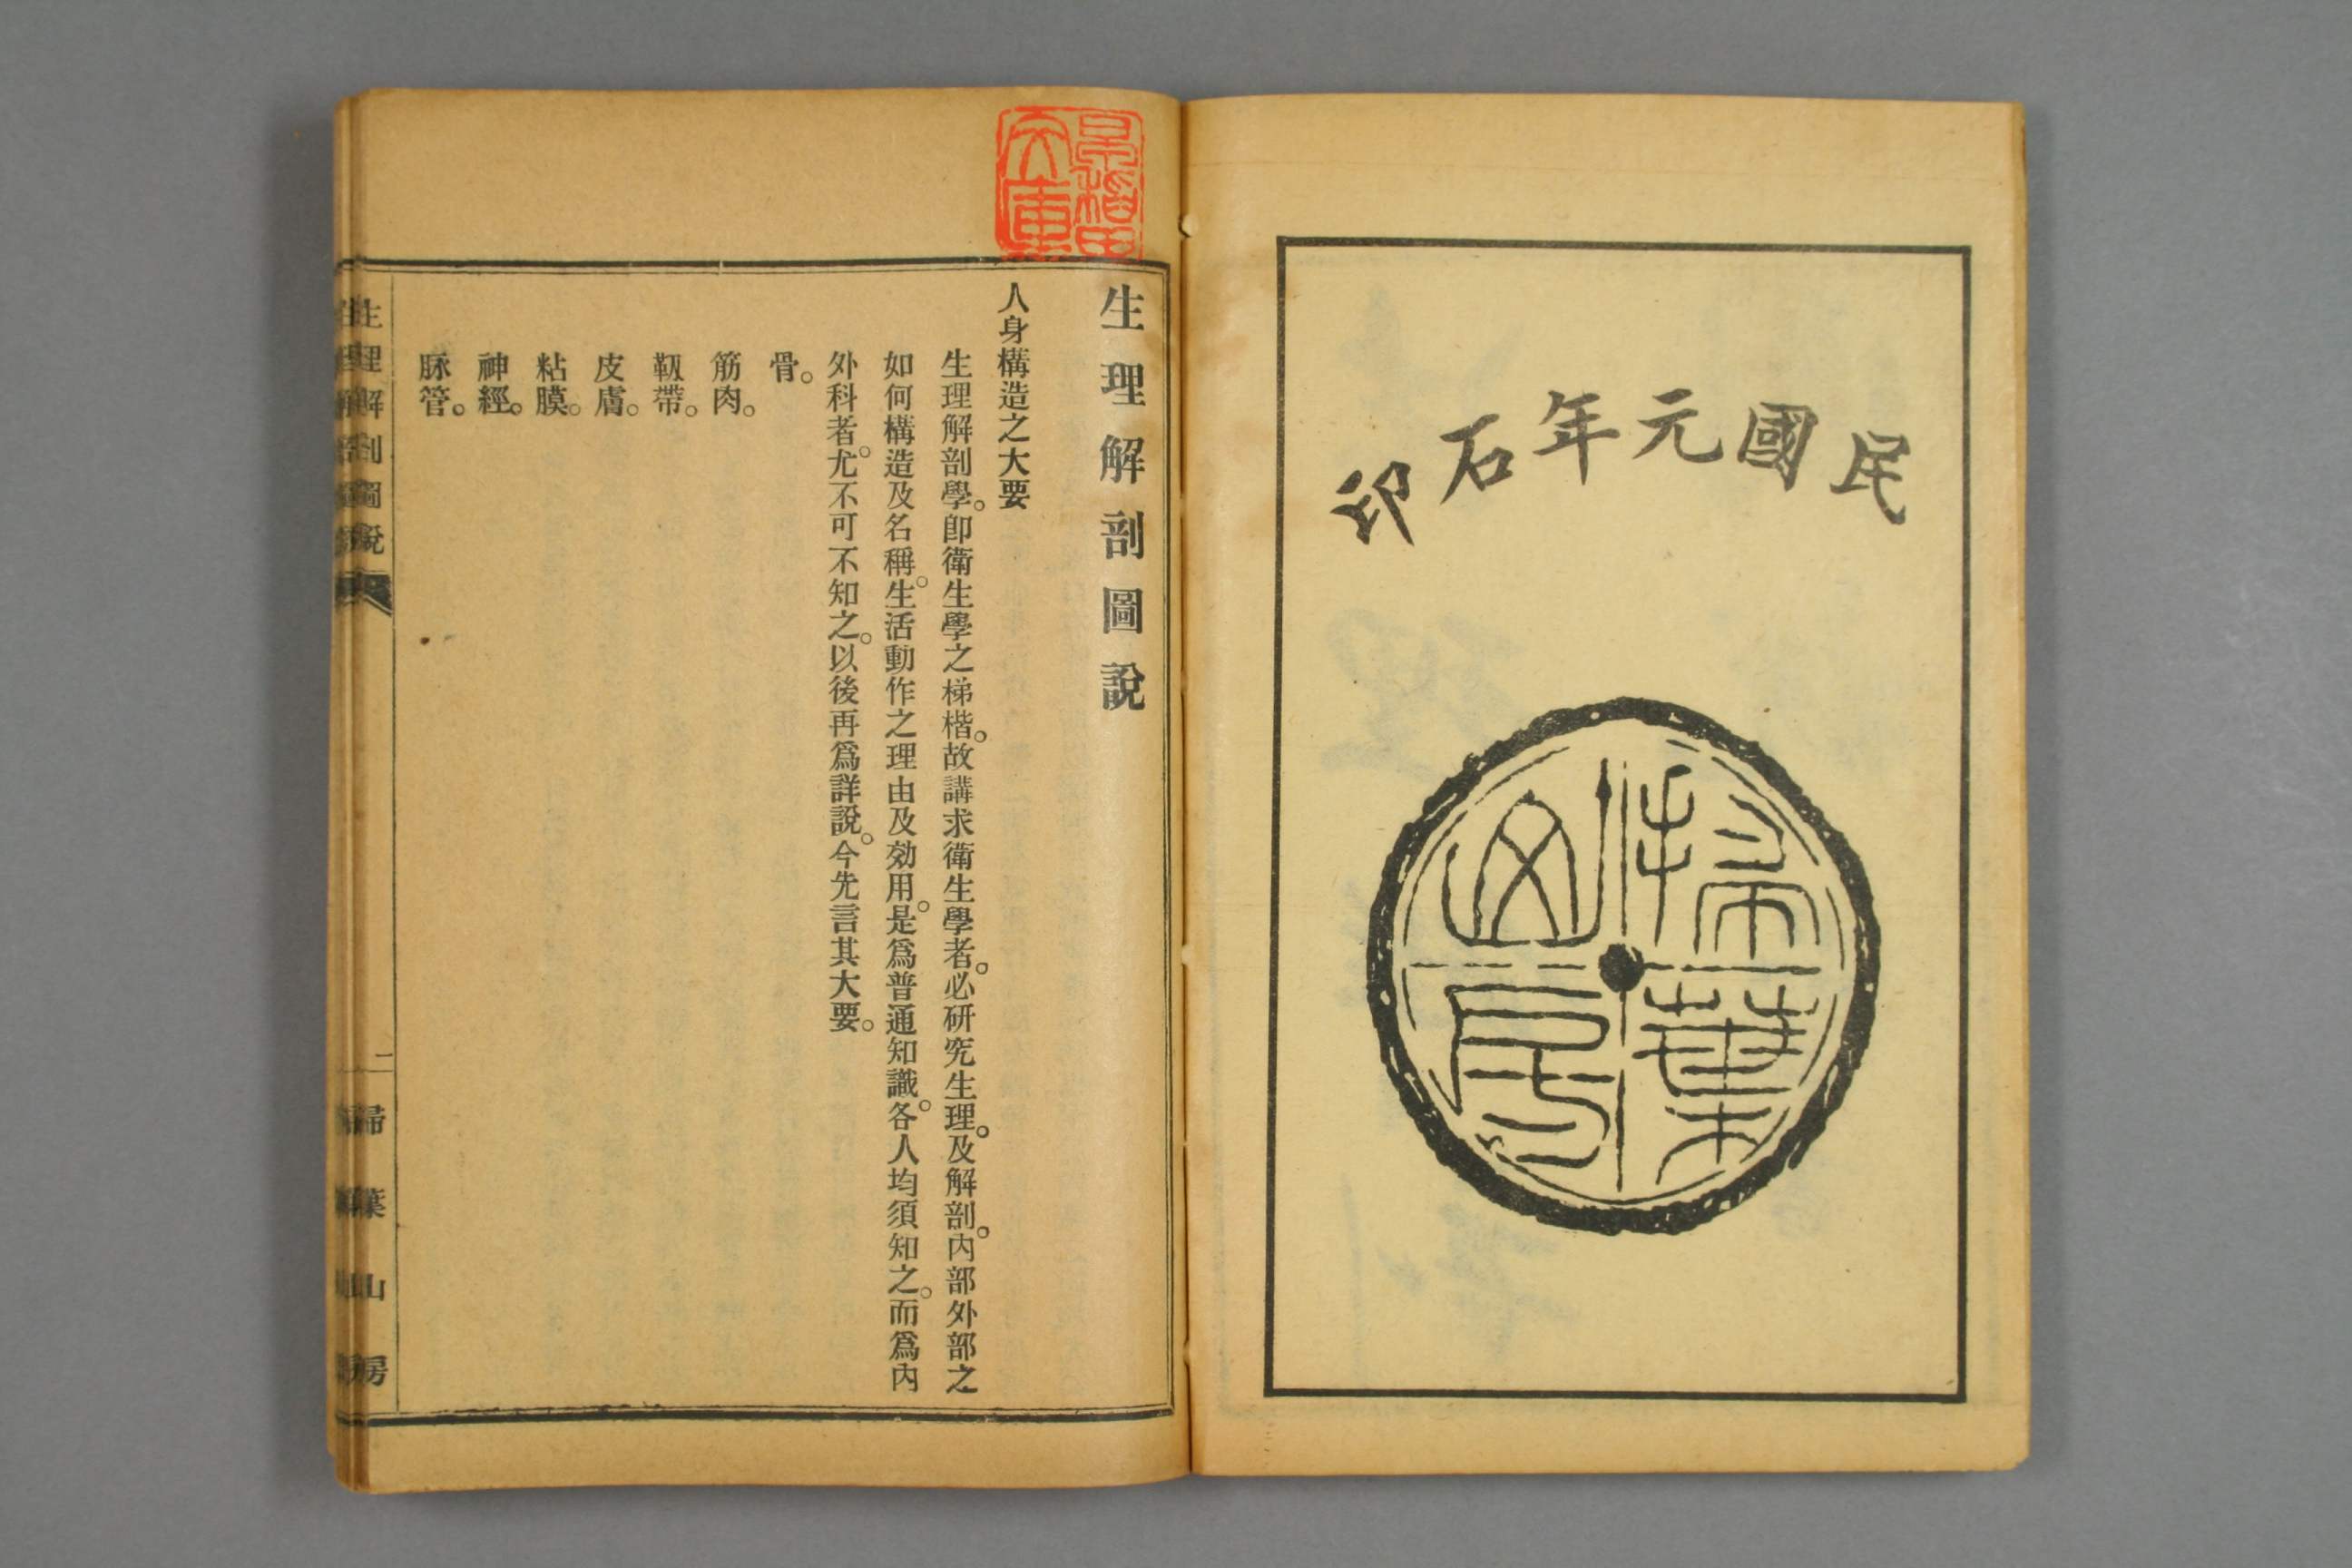 民國元年石印
掃葉山房
生理解剖圖說
人身構造之大要
生理解剖學。卽衛生學之梯楷。故講求衛生學者。必研究生理。及解剖。內部外部之
如何構造及名稱。生活動作之理由及効用。是爲普通知識。各人均須知之。而爲內
外科者。尤不可不知之。以後再爲詳說。今先言其大要。
骨。
筋肉。
靱帶。
皮膚。
粘膜。
神經。
脉管。
生理解剖圖說
二
掃葉山房